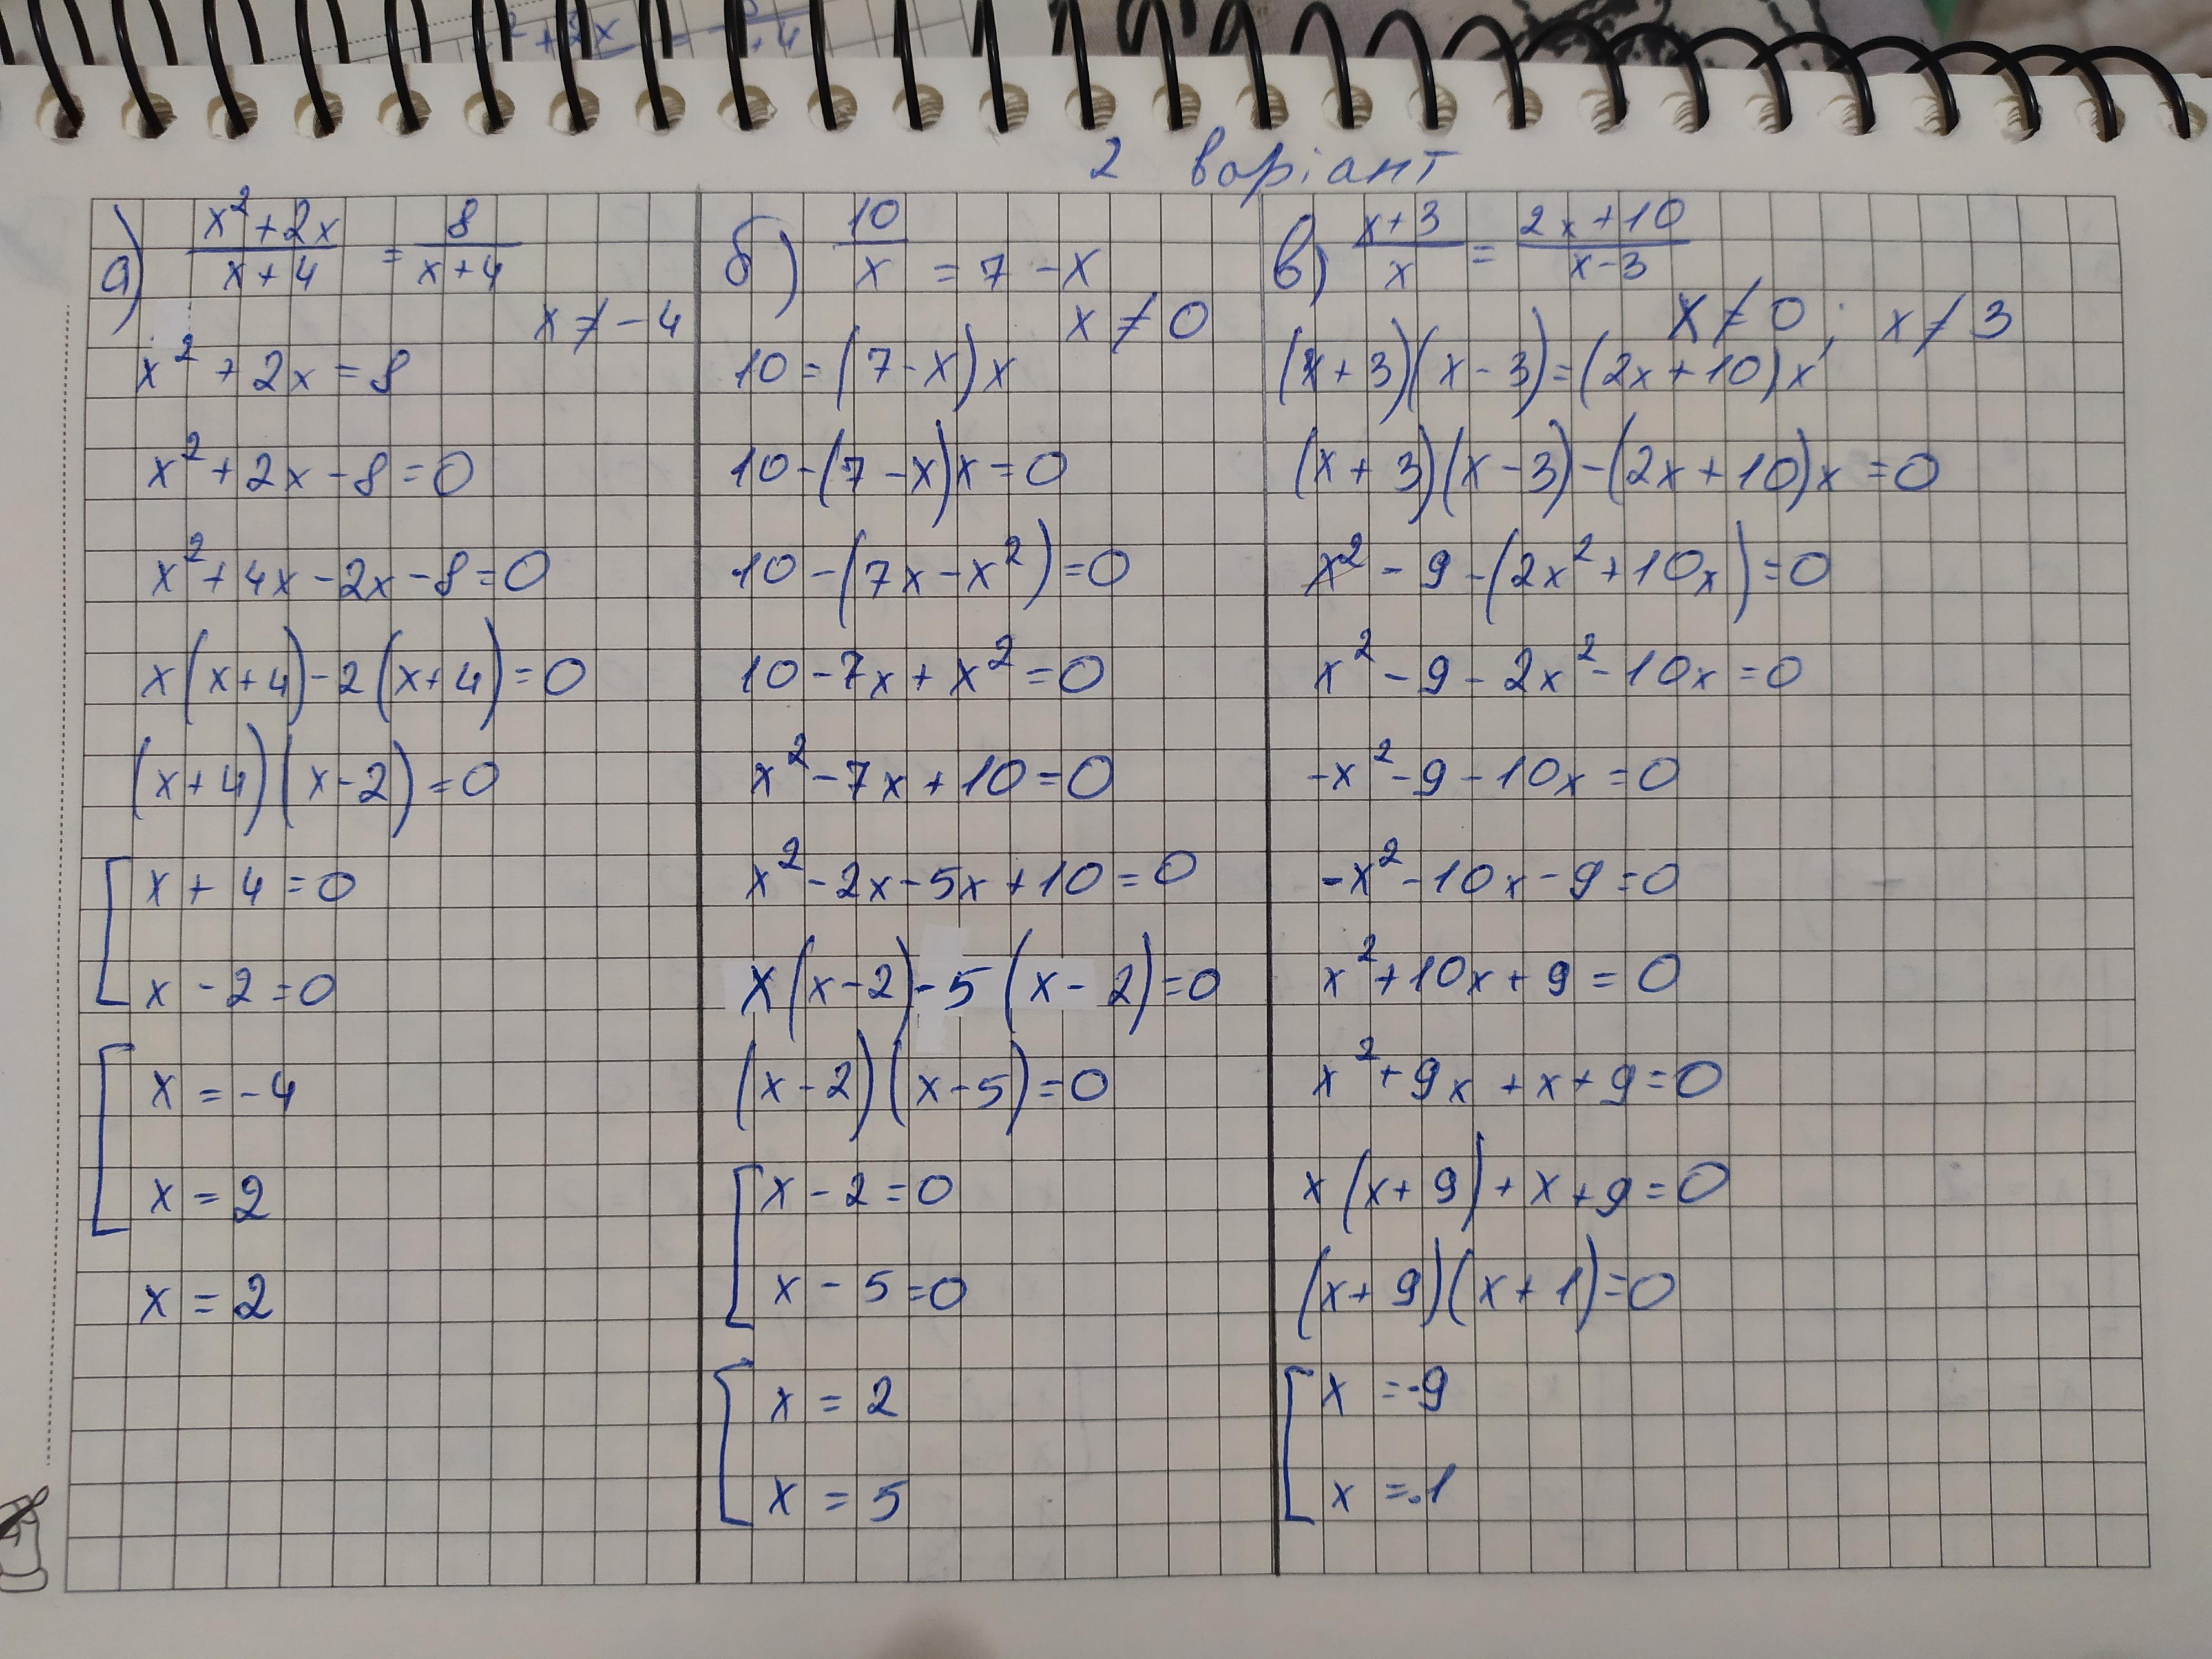 2 варіант
а) (x²+2x)/(x+4) = 8/(x+4)
x ≠ -4
x² + 2x = 8
x²+2x-8=0
x²+4x-2x-8=0
x(x+4)-2(x+4)=0
(x+4)(x-2)=0
[x+4=0
x-2=0
[x=-4
x=2
x=2
б) 10/x = 7-x
x ≠ 0
10=(7-x)x
10-(7-x)x=0
10-(7x-x²)=0
10-7x+x²=0
x²-7x+10=0
x²-2x-5x+10=0
x(x-2)-5(x-2)=0
(x-2)(x-5)=0
[x-2=0
x-5=0
[x=2
x=5
в) (x+3)/x = (2x+10)/(x-3)
x ≠ 0; x ≠ 3
(x+3)(x-3)=(2x+10)x
(x+3)(x-3)-(2x+10)x=0
x²-9-(2x²+10x)=0
x²-9-2x²-10x=0
-x²-9-10x=0
-x²-10x-9=0
x²+10x+9=0
x²+9x+x+9=0
x(x+9)+x+9=0
(x+9)(x+1)=0
[x=-9
x=-1